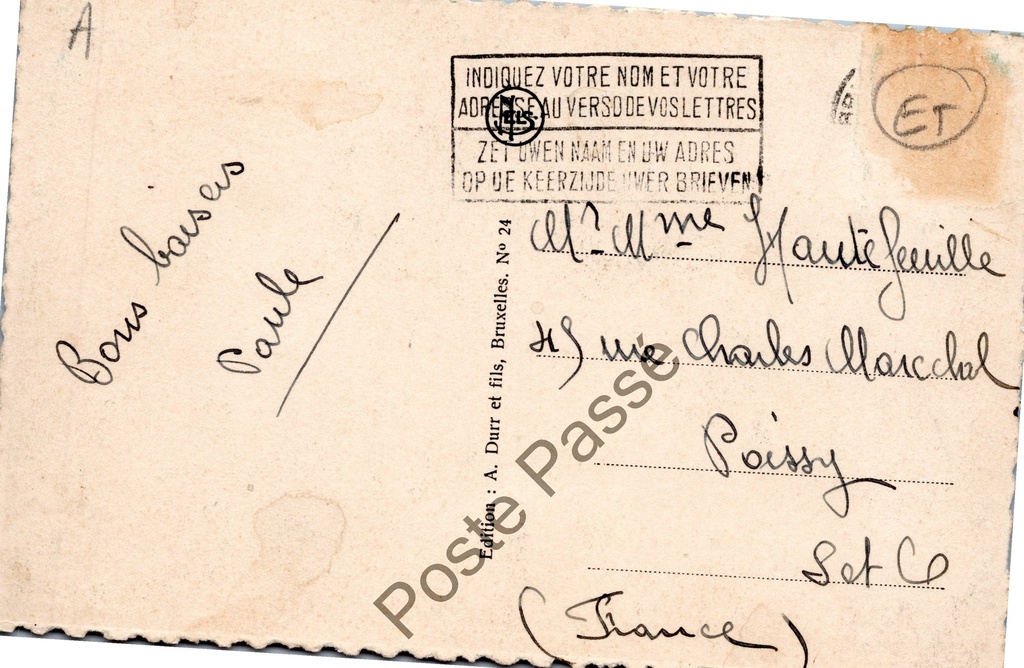 A
INDIQUEZ VOTRE NOM ET VOTRE
ADRESSE AU VERSO DE VOS LETTRES
ZET UWEN NAAM EN UW ADRES
OP DE KEERZIJDE UWER BRIEVEN
NELS
ET
Bons baisers
Paule
Edition : A. Durr et fils, Bruxelles. Nº 24
Mr. Mme Hautefeuille
45 rue Charles Marechal
Poissy
S et O
(France)
Poste Passé